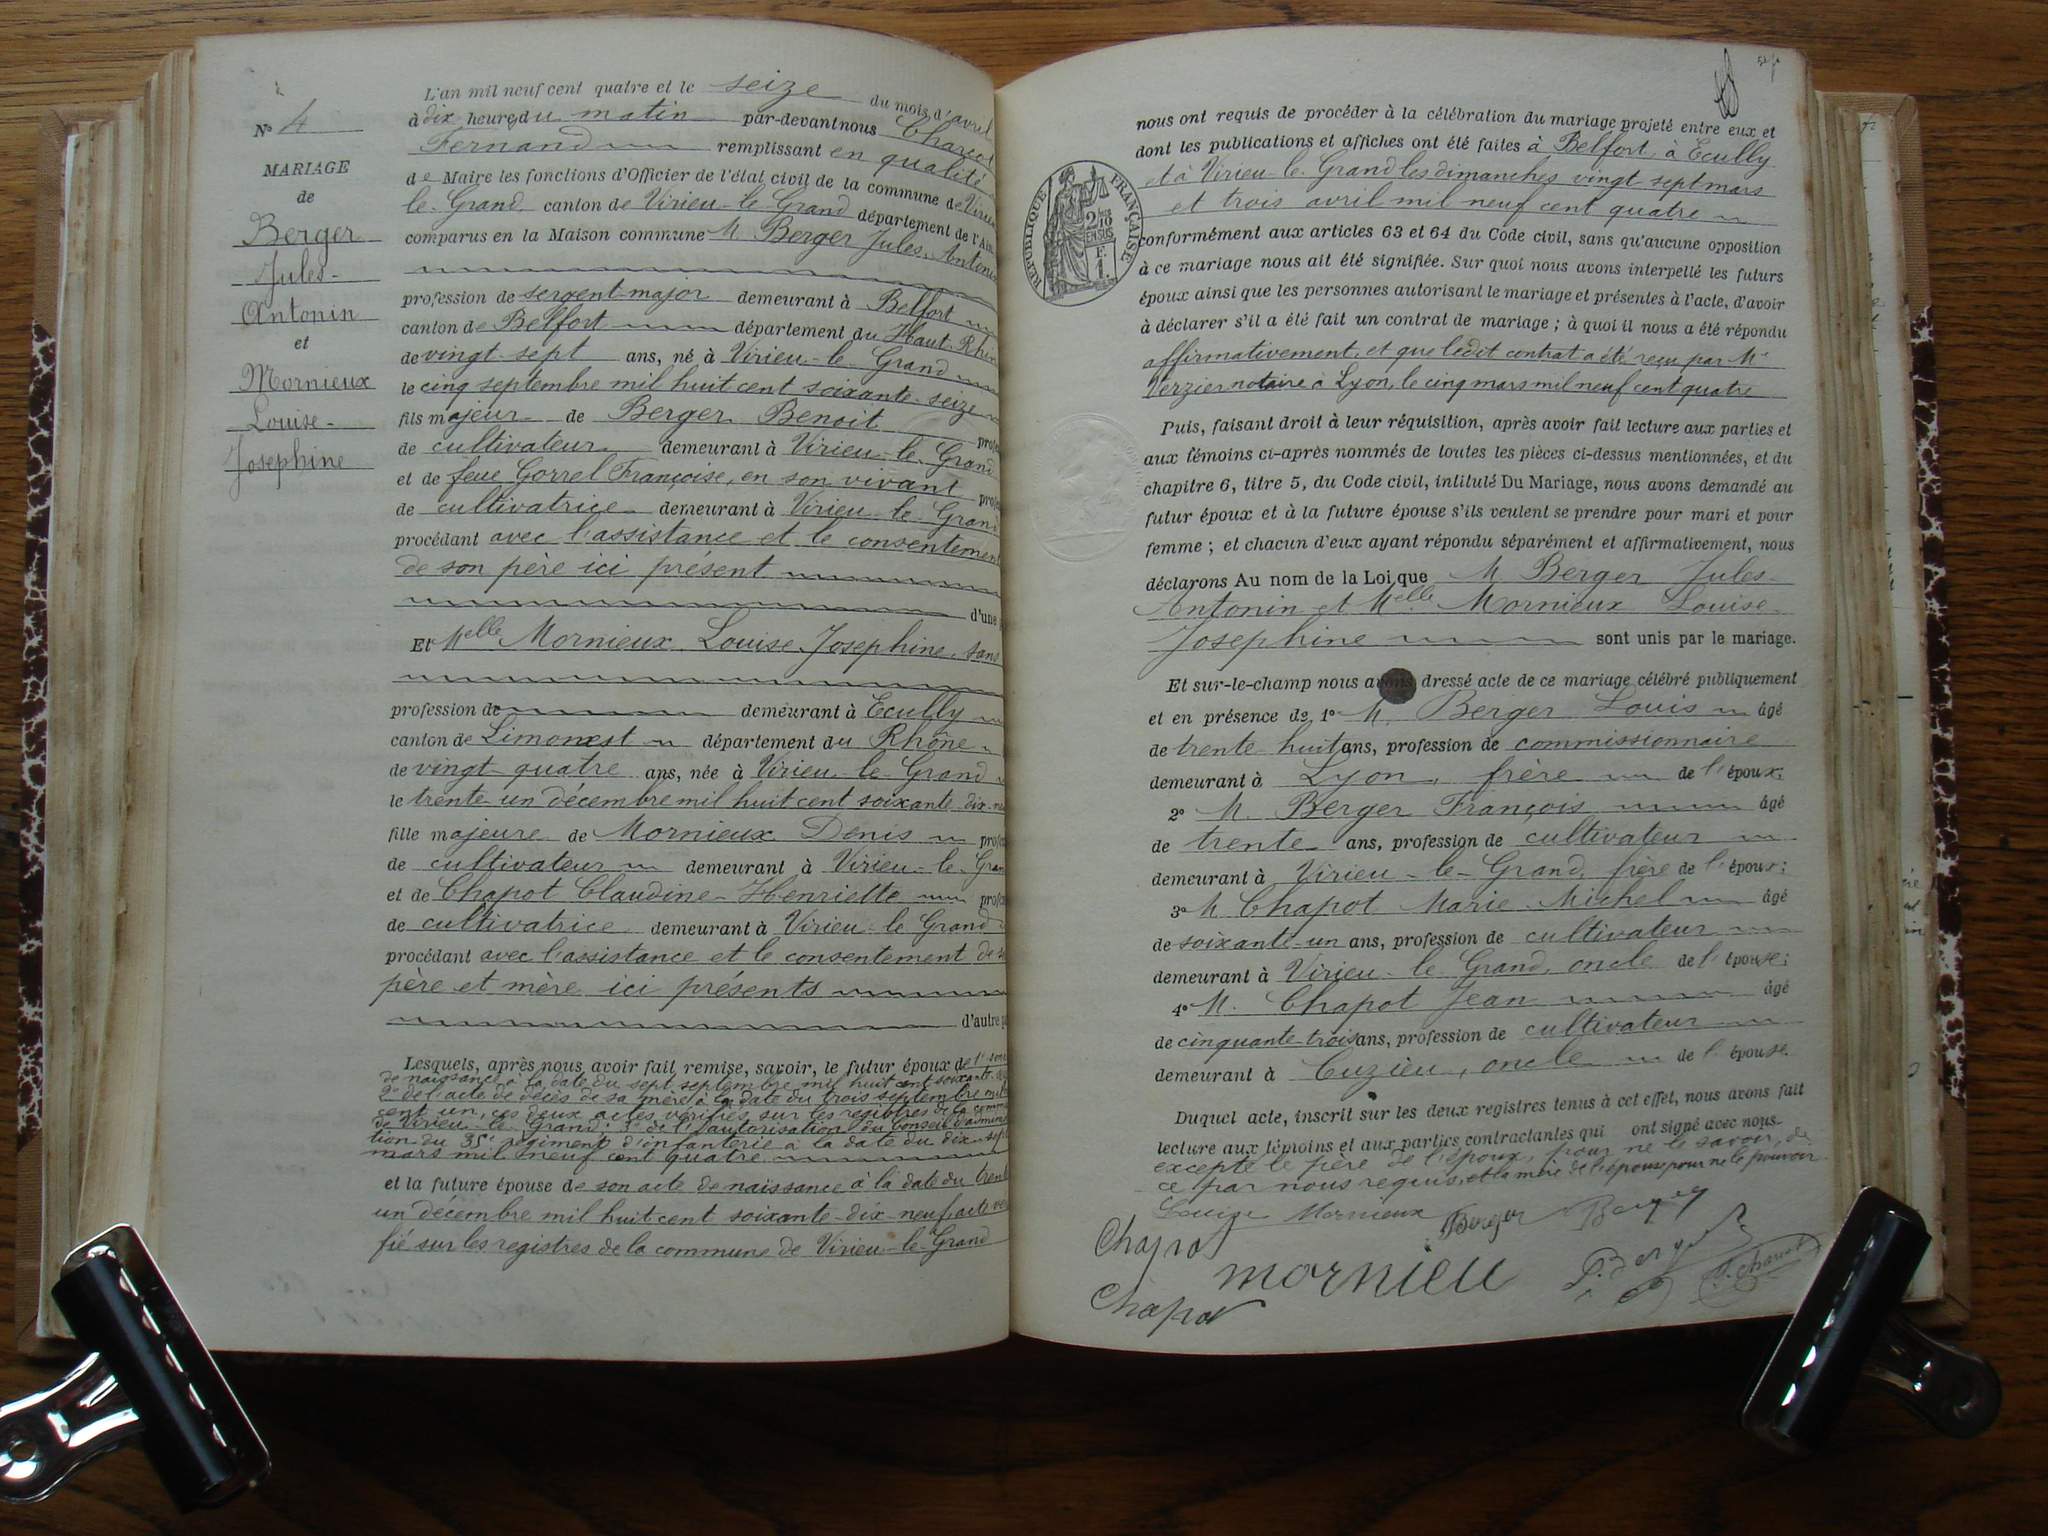 N° 4
MARIAGE
de
Berger
Jules-
Antonin
et
Mornieux
Louise-
Josephine
L'an mil neuf cent quatre et le seize du mois d'avril
à dix heures du matin par-devant nous Charcot
Fernand remplissant en qualité
de Maire les fonctions d'Officier de l'état civil de la commune de Virieu
le-Grand, canton de Virieu-le-Grand département de l'Ain
comparus en la Maison commune M. Berger Jules-Antonin
profession de sergent-major demeurant à Belfort
canton de Belfort département du Haut-Rhin
de vingt-sept ans, né à Virieu-le-Grand
le cinq septembre mil huit cent soixante-seize
fils majeur de Berger Benoit
de cultivateur demeurant à Virieu-le-Grand
et de feue Gorrel Françoise, en son vivant
de cultivatrice demeurant à Virieu-le-Grand
procédant avec l'assistance et le consentement
de son père ici présent
d'une
Et Melle Mornieux Louise-Josephine, sans
profession de demeurant à Ecully
canton de Limonest département du Rhône
de vingt-quatre ans, née à Virieu-le-Grand
le trente-un décembre mil huit cent soixante-dix-
fille majeure de Mornieux Denis
de cultivateur demeurant à Virieu-le-Gran
et de Chapot Claudine-Henriette
de cultivatrice demeurant à Virieu-le-Grand
procédant avec l'assistance et le consentement de
père et mère ici présents
d'autre
Lesquels, après nous avoir fait remise, savoir, le futur époux de 1°
de naissance à la date du sept septembre mil huit cent soixante-
2° de l'acte de décès de sa mère à la date du trois septembre mil
cent un, ces deux actes vérifiés sur les registres de la
de Virieu-le-Grand; 3° de l'autorisation du conseil d'adminis
tion du 35e régiment d'infanterie à la date du dix-sept
mars mil neuf cent quatre
et la future épouse de son acte de naissance à la date du trente
un décembre mil huit cent soixante-dix-neuf, acte véri
fié sur les registres de la commune de Virieu-le-Grand
nous ont requis de procéder à la célébration du mariage projeté entre eux et
dont les publications et affiches ont été faites à Belfort, à Ecully
et à Virieu-le-Grand les dimanches vingt-sept mars
et trois avril mil neuf cent quatre
conformément aux articles 63 et 64 du Code civil, sans qu'aucune opposition
à ce mariage nous ait été signifiée. Sur quoi nous avons interpellé les futurs
époux ainsi que les personnes autorisant le mariage et présentes à l'acte, d'avoir
à déclarer s'il a été fait un contrat de mariage; à quoi il nous a été répondu
affirmativement, et que ledit contrat a été reçu par Me
Verzier notaire à Lyon, le cinq mars mil neuf cent quatre
Puis, faisant droit à leur réquisition, après avoir fait lecture aux parties et
aux témoins ci-après nommés de toutes les pièces ci-dessus mentionnées, et du
chapitre 6, titre 5, du Code civil, intitulé Du Mariage, nous avons demandé au
futur époux et à la future épouse s'ils veulent se prendre pour mari et pour
femme; et chacun d'eux ayant répondu séparément et affirmativement, nous
déclarons Au nom de la Loi que M. Berger Jules-
Antonin et Melle Mornieux Louise-
Josephine sont unis par le mariage.
Et sur-le-champ nous avons dressé acte de ce mariage célébré publiquement
et en présence de 1° M. Berger Louis âgé
de trente-huit ans, profession de commissionnaire
demeurant à Lyon, frère de l'époux;
2° M. Berger François âgé
de trente ans, profession de cultivateur
demeurant à Virieu-le-Grand, frère de l'époux;
3° M. Chapot Marie-Michel âgé
de soixante-un ans, profession de cultivateur
demeurant à Virieu-le-Grand, oncle de l'épouse;
4° M. Chapot Jean âgé
de cinquante-trois ans, profession de cultivateur
demeurant à Cuzieu, oncle de l'épouse.
Duquel acte, inscrit sur les deux registres tenus à cet effet, nous avons fait
lecture aux témoins et aux parties contractantes qui ont signé avec nous
excepté le père de l'époux, pour ne le savoir, de
ce par nous requis, et la mère de l'épouse pour ne le pouvoir.
Louise Mornieux Berger Berger
Chapot
mornieu
Chapot
F. Charcot
RÉPUBLIQUE FRANÇAISE
2/10
EN SUS
F.
1.